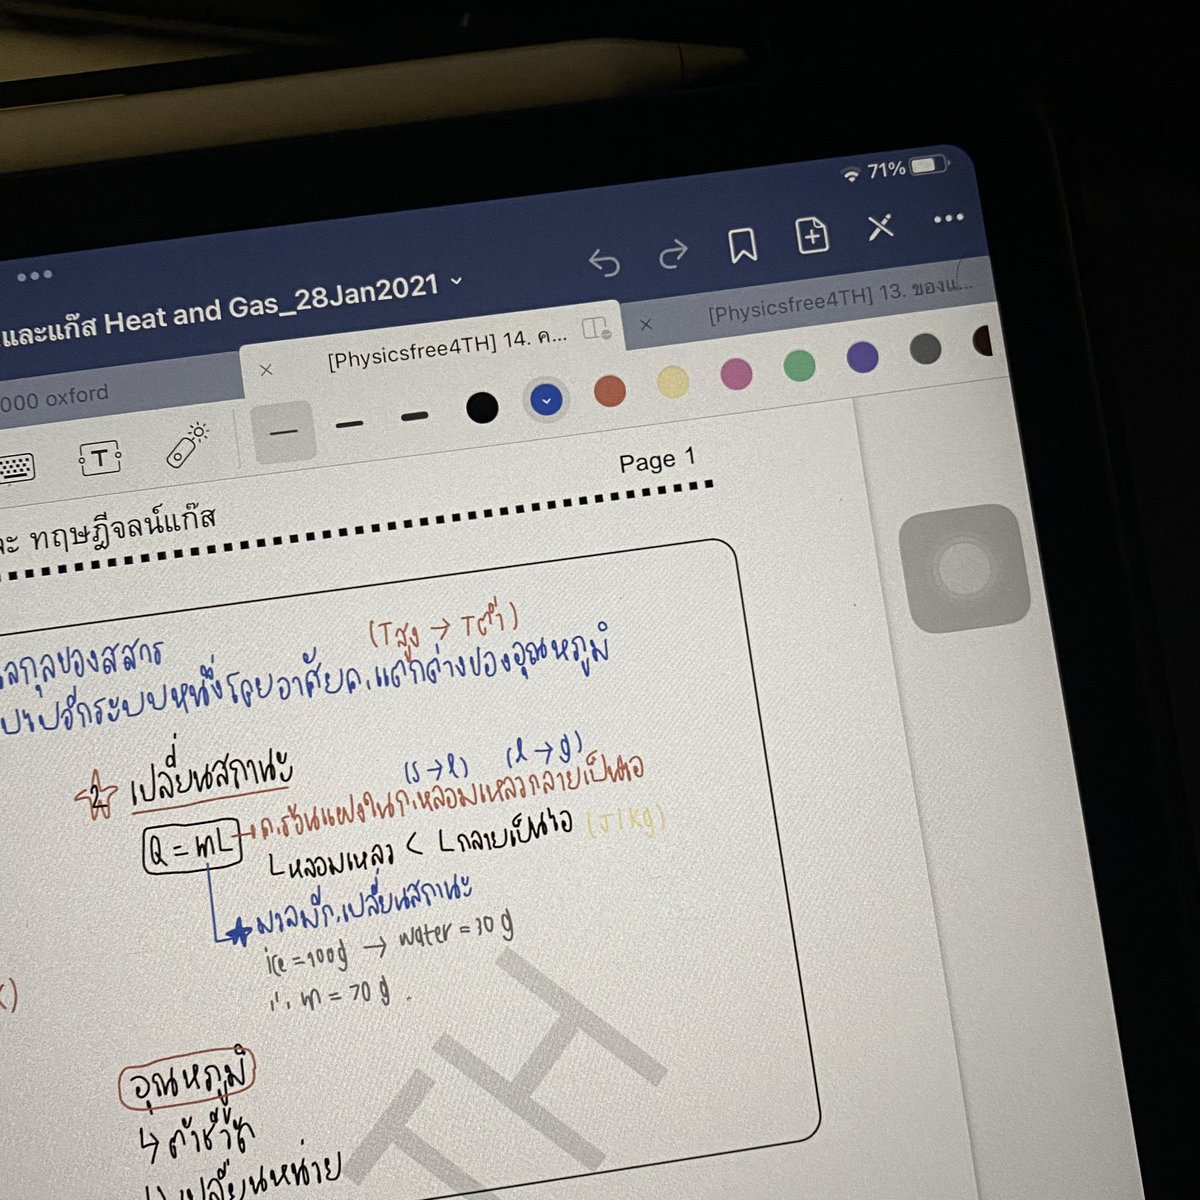 71%
และแก๊ส Heat and Gas_28Jan2021
000 oxford
[Physicsfree4TH] 14. ค...
[Physicsfree4TH] 13. ของแ...
T
Page 1
ะ ทฤษฎีจลน์แก๊ส
(Tสูง → Tต่ำ)
ลกุลของสสาร
ไปอีกระบบหนึ่งโดยอาศัยค.แตกต่างของอุณหภูมิ
2 เปลี่ยนสถานะ
(s → l) (l → g)
Q = mL → ค.ร้อนแฝงในก.หลอมเหลวกลายเป็นไอ
Lหลอมเหลว < Lกลายเป็นไอ (J/kg)
มวลที่ก.เปลี่ยนสถานะ
ice = 100g → water = 30 g
∴ m = 70 g .
อุณหภูมิ
↳ ตัวชี้วัด
↳ เปลี่ยนหน่วย
TH